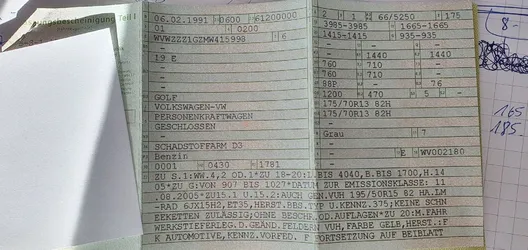 ungsbescheinigung Teil I
06.02.1991 0600 61200000
01 0200
WVWZZZ1GZMW415998 6
-
19 E
-
-
-
GOLF
VOLKSWAGEN-VW
PERSONENKRAFTWAGEN
GESCHLOSSEN
-
SCHADSTOFFARM D3
Benzin
0001 0430 1781
2 1 66/5250 175
3985-3985 1665-1665
1415-1415 935-935
- - -
- 1440 1440
760 710 -
760 710 -
88P. - 76
1200 470 5 -
175/70R13 82H
175/70R13 82H
-
Grau 7
-
E WV002180
ZU S.1:WW.4,2 OD.1*ZU 18-20:L.BIS 4040,B.BIS 1700,H.14
05*ZU G:VON 907 BIS 1027*DATUM ZUR EMISSIONSKLASSE: 11
.08.2005*ZU15.1 U.15.2:AUCH GEN.VUH 195/50R15 82 HA.LM
-RAD 6JX15H2,ET35,HERST.BBS.TYP U.KENNZ.375;KEINE SCHN
EEKETTEN ZULÄSSIG;OHNE BESCHR.OD.AUFLAGEN*ZU 20:M.FAHR
WERKSTIEFERLEG.D.GEÄND.FELDERN VUH,FARBE GELB,HERST.:F
K AUTOMOTIVE,KENNZ.VORFED. F ORTSETZUNG AUF BEIBLATT
8-
165
185